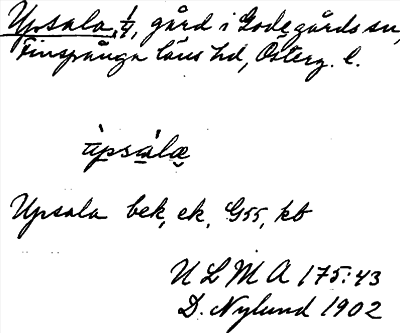 Upsala, 1/4, gård i Godegårds sn,
Finspånga läns hd, Österg. l.
ùpsàlæ
Upsala bek, ek, G55, kb
U L M A 175:43
D. Nylund 1902